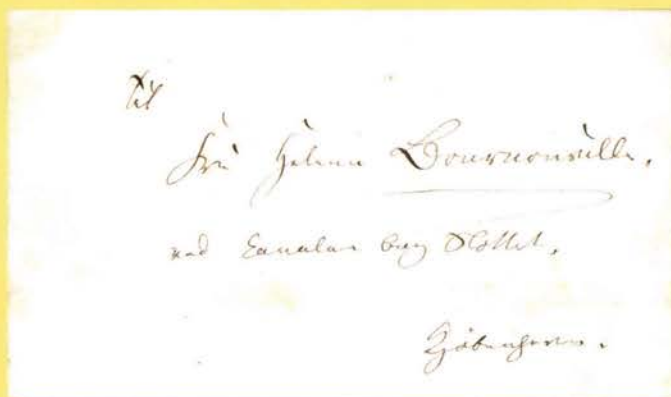 Til
Fru Helene Bournonville.
ved Canalen bag Slottet.
Kjöbenhavn.